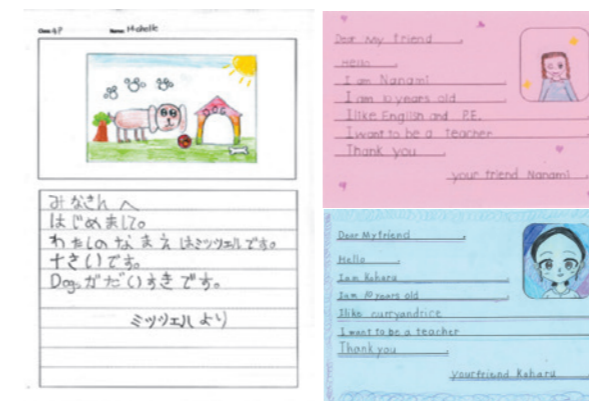 Class: 4P Name: Michelle
DOG
みなさんへ
はじめまして。
わたしのなまえはミッシェルです。
十さいです。
Dog.がだいすきです。
ミッシェルより
Dear My friend
Hello
I am Nanami
I am 10 years old
I like English and P.E.
I want to be a teacher
Thank you
your friend Nanami
Dear My friend
Hello
I am Koharu
I am 10 years old
I like curry and rice
I want to be a teacher
Thank you
your friend Koharu